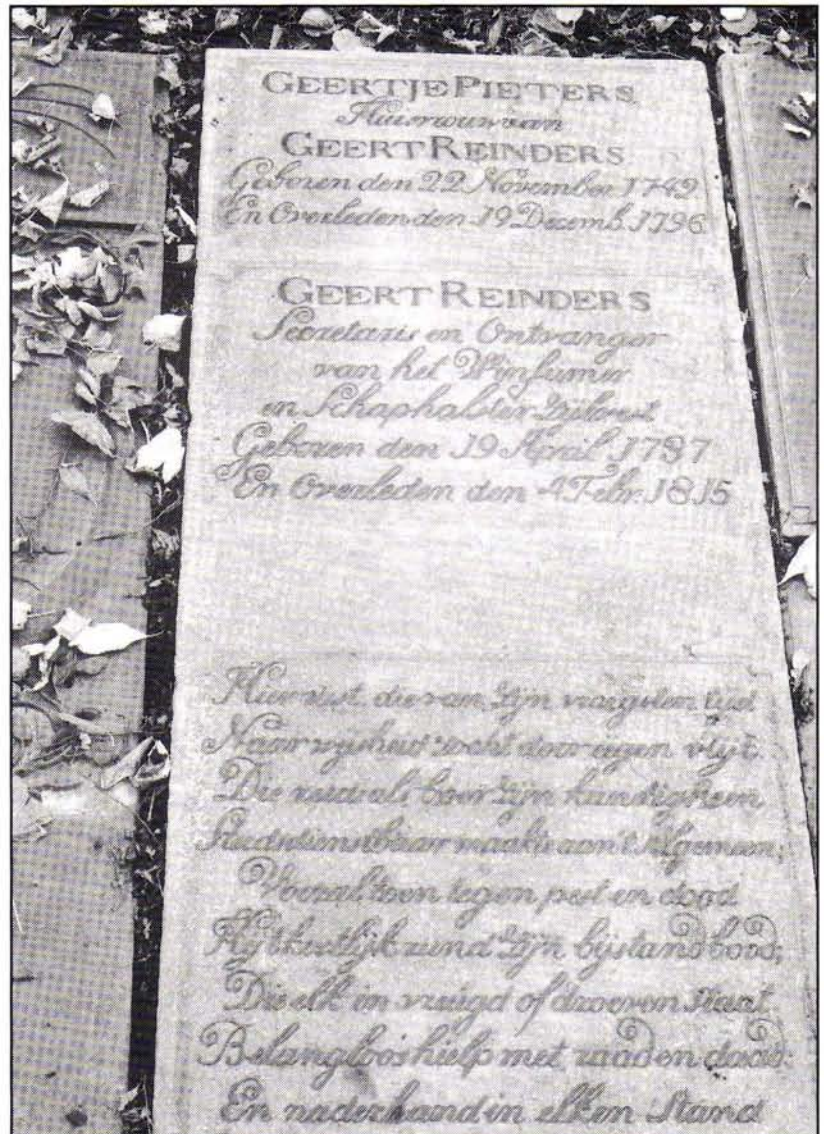 GEERTJE PIETERS
Huisvrouw van
GEERT REINDERS
Geboren den 22 November 1742
En Overleden den 19 Decemb. 1796.
GEERT REINDERS
Secretaris en Ontvanger
van het Winsumer
en Schaphalster Zijlvest
Geboren den 19 April 1737
En Overleden den 4 Febr. 1815
Hier rust, die van zijn vroegsten tijd
Naar wijsheid zocht door eigen vlijt.
Die reeds als boer zijn kundigheen
maakte aan 't Algemeen;
Vooral, toen tegen pest en dood
Hij rund zijn bijstand bood;
Die elk in vreugd of droeven staat
Belangloos hielp met raad en daad:
En naderhand in elken Stand